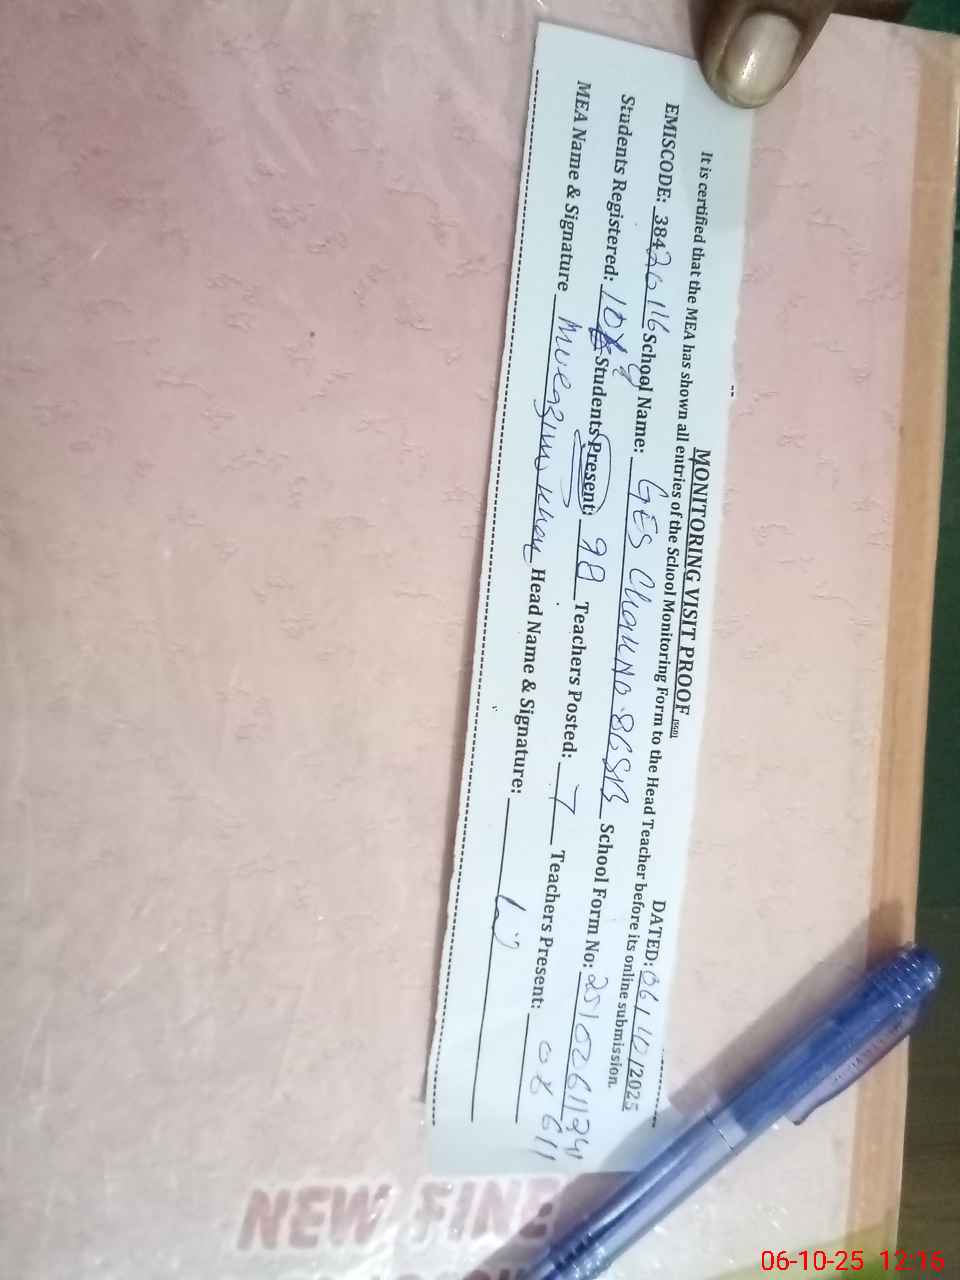 MONITORING VISIT PROOF (SGD)
DATED: 06/10/2025
It is certified that the MEA has shown all entries of the School Monitoring Form to the Head Teacher before its online submission.
EMISCODE: 38426116 School Name: GES Chak NO. 86 SB School Form No: 2510261124
Students Registered: 10 Students Present: 98 Teachers Posted: 7 Teachers Present:
MEA Name & Signature Muazzim Khan Head Name & Signature:
NEW FINE
06-10-25 12:16